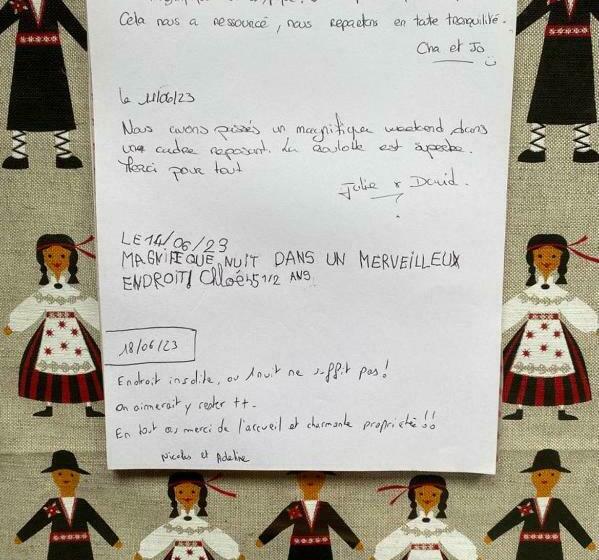 Cela nous a ressourcé, nous repartons en toute tranquilité.
Cha et Jo
Le 11/06/23
Nous avons passés un magnifique weekend dans
une cadre reposant. La roulotte est superbe.
Merci pour tout
Julie & David.
LE 14/06/23
MAGNIFIQUE NUIT DANS UN MERVEILLEUX
ENDROIT! Chloé 5 1/2 ANS
18/06/23
Endroit insolite, où 1 nuit ne suffit pas!
on aimerait y rester ++.
En tout cas merci de l'accueil et charmante propriété!!
Nicolas et Adeline